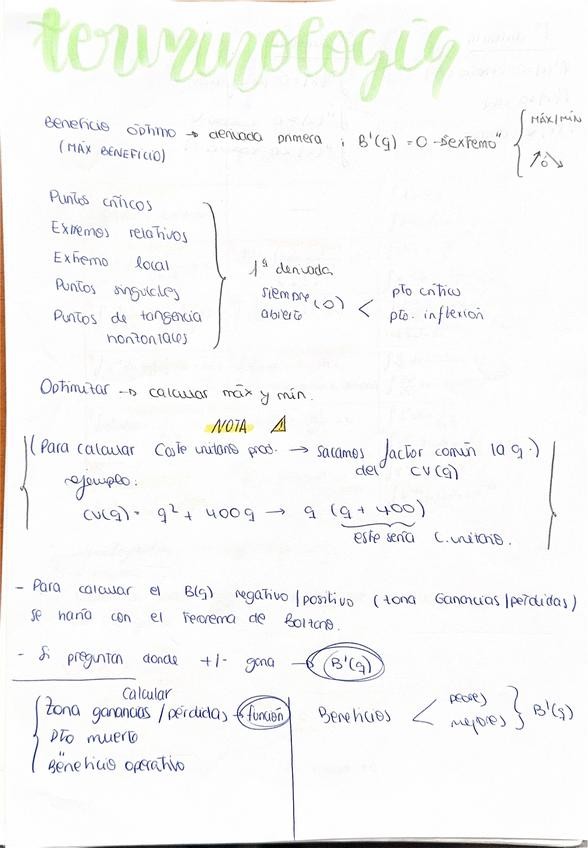 terminología
Beneficio óptimo → derivada primera ; B'(q) = 0 → "extremo" { MÁX/MÍN
(MÁX BENEFICIO)
↗0↘
Puntos críticos
Extremos relativos
Extremo local
Puntos singulares
Puntos de tangencia
horizontales
1ª derivada
siempre (0) < pto crítico
abierto pto. inflexión
Optimizar → calcular máx y mín.
NOTA ⚠
(Para calcular Coste unitario prod. → sacamos factor común la q.)
del CV(q)
ejemplo:
CV(q) = q² + 400q → q (q + 400)
este sería C. unitario.
- Para calcular el B(q) negativo/positivo (zona Ganancias/pérdidas)
se haría con el Teorema de Bolzano.
- Si preguntan donde +/- gana → B'(q)
Calcular
Zona ganancias/pérdidas → función
Pto muerto
Beneficio operativo
Beneficios < peores } B'(q)
mejores